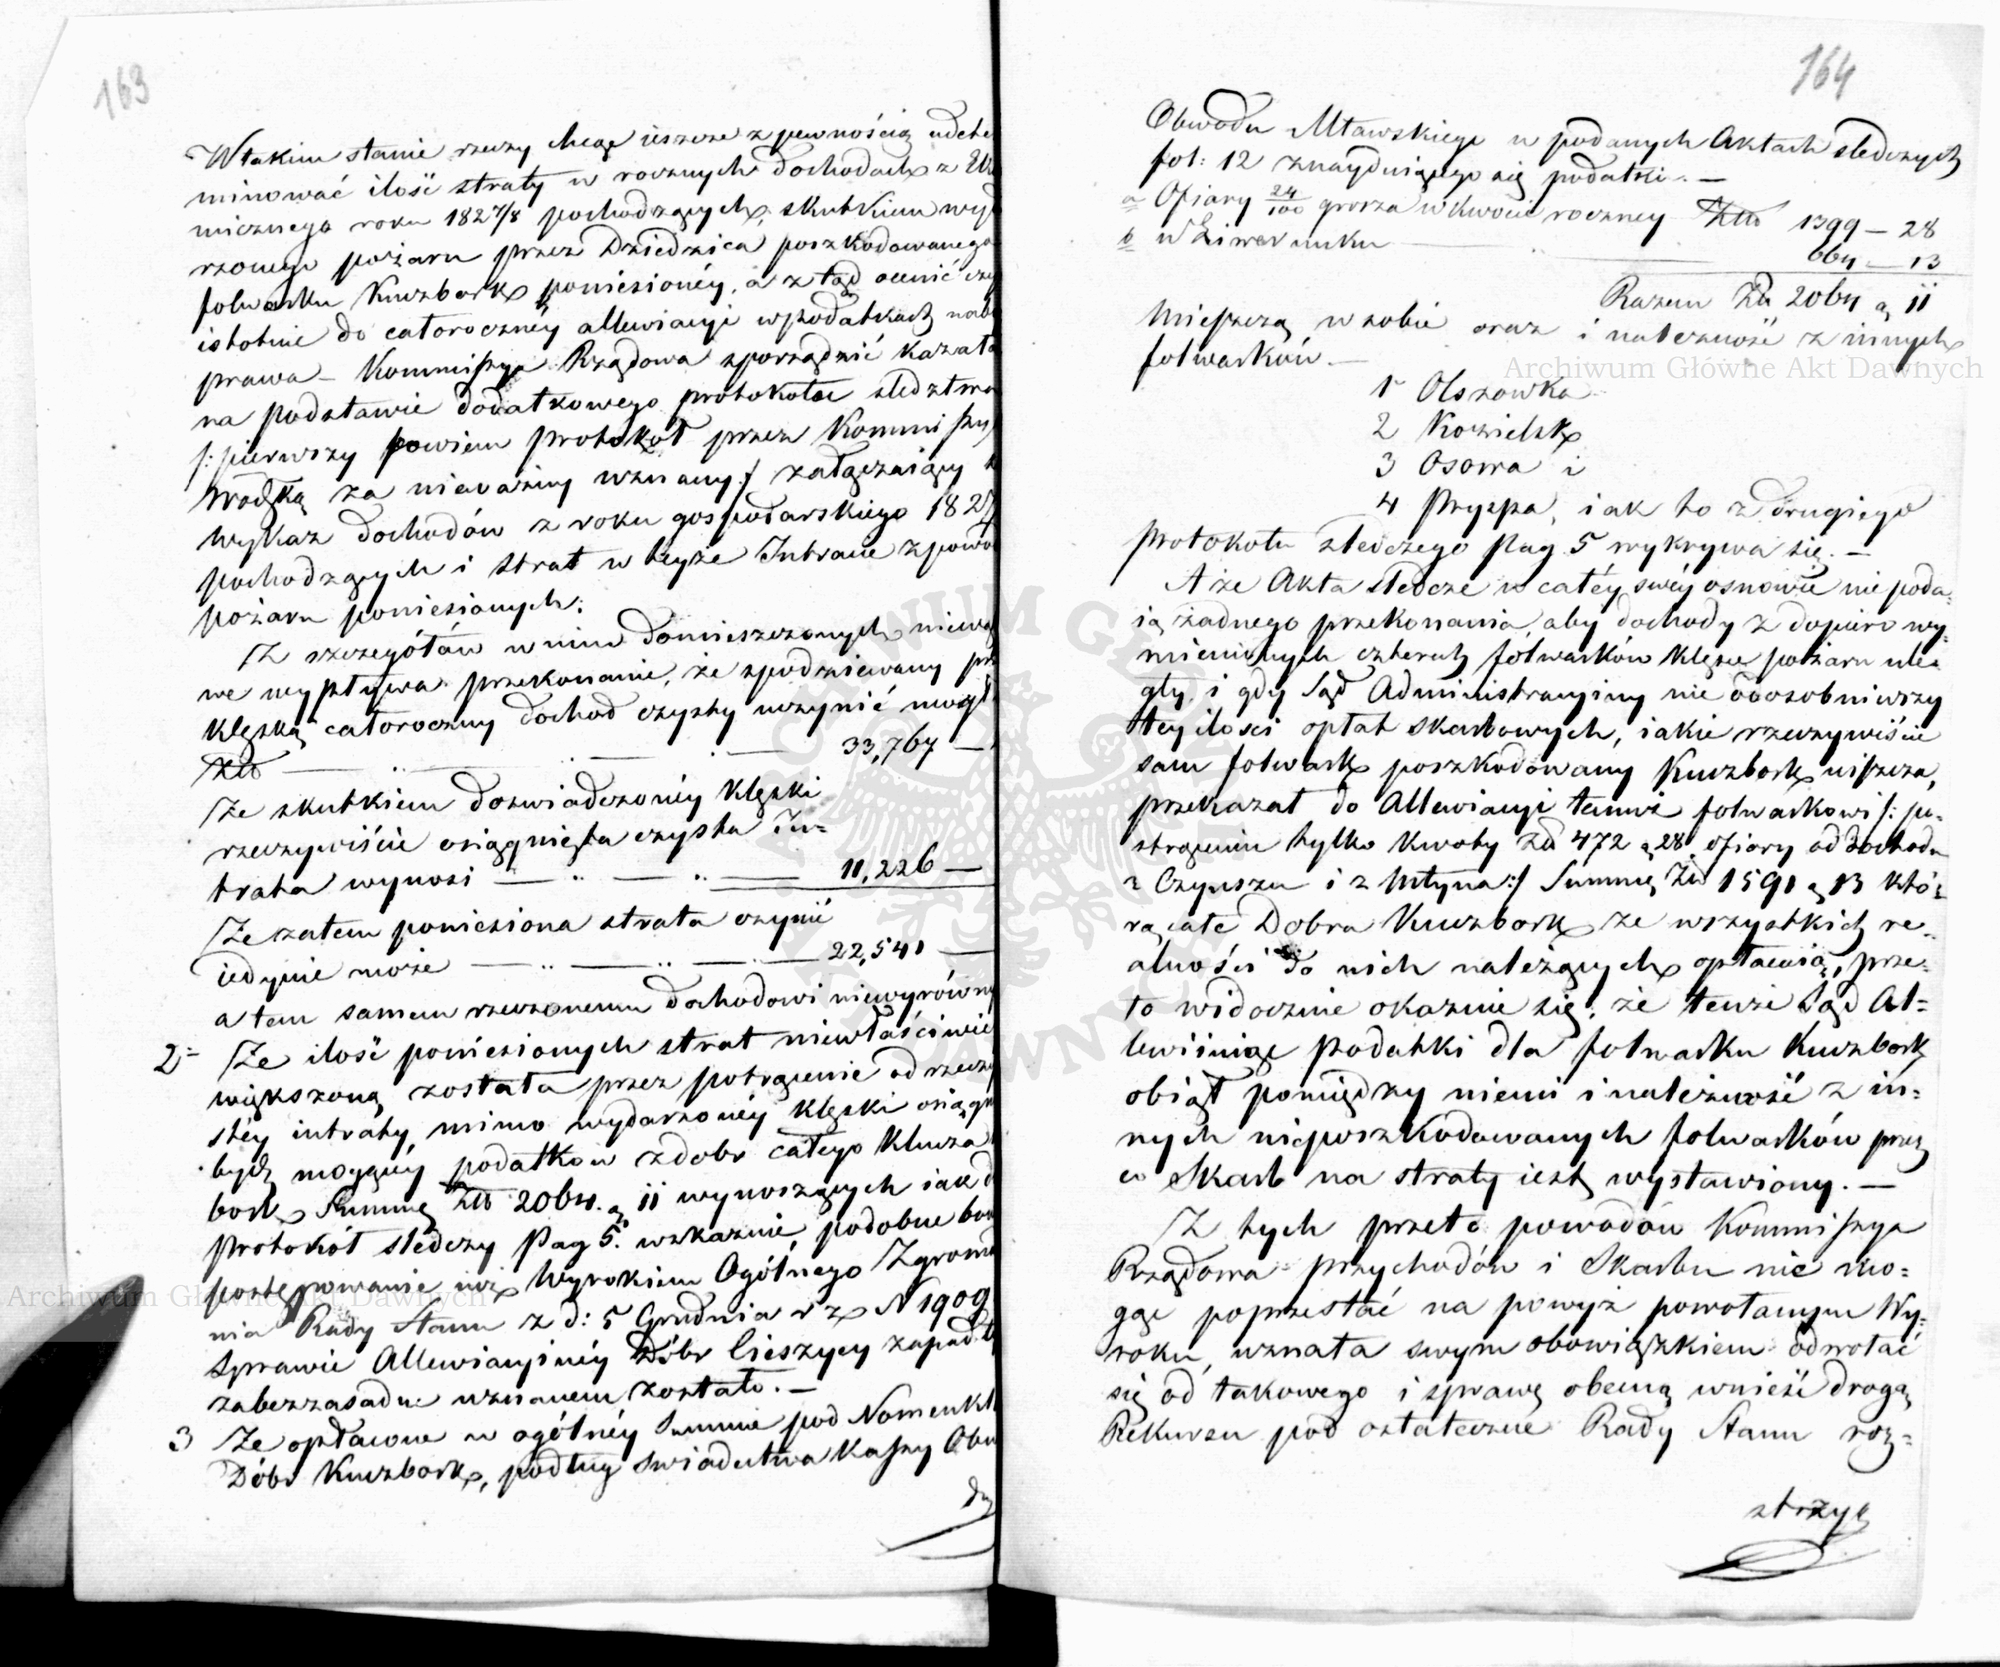 163
W takim stanie rzeczy chcąc ieszcze z pewnością udeter
minować ilość straty w rocznych dochodach z Eko
micznego roku 1827/8 pochodzących, skutkiem wyd
rzonego pożaru przez Dziedzica poszkodowanego
folwarku Kuczbork poniesionéy, a z tąd ocenić czy
istotnie do całorocznéy allewiacyi w podatkach nab
prawa – Kommissya Rządowa sporządzić kazała
na podstawie dodatkowego protokołu śledztwa
/: pierwszy bowiem protokół przez Kommissyą
Wodzką za nieważny uznany :/ załączaiący
wykaz dochodów z roku gospodarskiego 1827
pochodzących i strat w teyże Intracie z powo
pożaru poniesionych:
Z szczegółów w nim domieszczonych niewąt
we wypływa przekonanie, że spodziewany prz
klęską całoroczny dochod czysty uczynić mogł
Złł — .. — .. — 33,767 —
Że skutkiem doświadczonéy klęski
rzeczywiście osiągnięta czysta In=
trata wynosi — .. — .. — 11,226 —
Że zatem poniesiona strata czynić
iedynie może — .. — .. — 22,541 —
a tem samem rzeczonemu dochodowi niewyrówny
2= Że ilość poniesionych strat niewłaściwie
większoną została przez potrącenie od rzeczy
stéy intraty, mimo wydarzonéy klęski osiągn
bydź mogącéy podatkow z dobr całego Klucza
bork Summę Złł 2064. g 11 wynoszących iak d
protokół śledczy Pag 5. wskazuie, podobne bow
postępowanie iuż Wyrokiem Ogólnego Zgrom
nia Rady Stanu z d: 5 Grudnia r z N 1909
Sprawie Allewiacyinéy Dóbr Cieszyey zapad
za bezzasadne uznanem zostało. —
3 Że opłacone w ogólnéy Summie pod Nomenkl
Dóbr Kuczbork, podług świadectwa Kassy Obw
du
164
Obwodu Mławskiego w podanych Aktach śledczych
fol: 12 znayduiącego się podatki. —
a Ofiary 24/100 grosza w kwocie roczney Złł 1399 — 28
b w Liwerunku — 664 — 13
Razem Złł 2064 g 11
mieszczą w sobie oraz i należność z innych
folwarków. —
1 Olszowka
2 Kozielsk
3 Osowa i
4 Pryzpa, iak to z drugiego
protokołu śledczego Pag 5 wykrywa się. —
A że Akta śledcze w całéy swéy osnowie nie poda=
ią żadnego przekonania, aby dochody z dopiero wy=
mienionych czterech folwarków klęsce pożaru ule=
gły, i gdy Sąd Administracyiny nie odosobniwszy
téy ilości opłat skarbowych, iakie rzeczywiście
sam folwark poszkodowany Kuczbork uiszcza,
przekazał do Allewiacyi temuż folwarkowi /: po=
strąceniu tylko kwoty Złł 472 g 28 ofiary od dochodu
z Czynszu i z Młyna :/ Summę Złł 1591 g 13 któ=
rą całe Dobra Kuczbork ze wszystkich re=
alności do nich należących opłacaią, prze=
to widocznie okazuie się, że tenże Sąd Al=
lewiiuiąc podatki dla folwarku Kuczbork
obiął pomiędzy niemi i należność z in=
nych nieposzkodowanych folwarków przez
co Skarb na straty iest wystawiony. —
Z tych przeto powodów Kommissya
Rządowa przychodów i Skarbu nie mo=
gąc poprzestać na powyż powołanym Wy=
roku, uznała swym obowiązkiem odwołać
się od takowego i sprawę obecną wnieść drogą
Rekursu pod ostateczne Rady Stanu roz=
strzyg